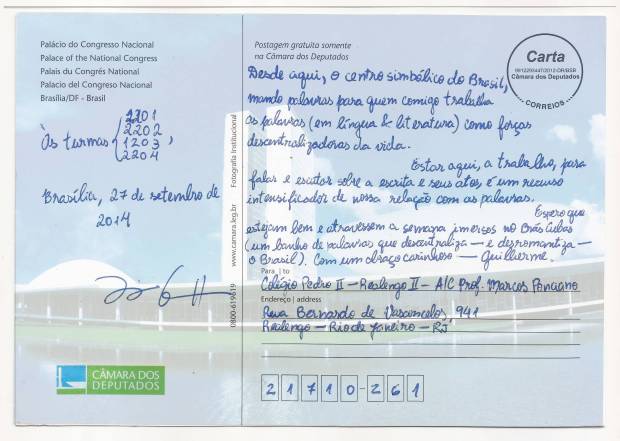 Palácio do Congresso Nacional
Palace of the National Congress
Palais du Congrés National
Palacio del Congreso Nacional
Brasília/DF - Brasil
Às turmas
2201
2202
1203
2204
,
Brasília, 27 de setembro de
2014
CÂMARA DOS
DEPUTADOS
Fotografia Institucional
www.camara.leg.br
0800-619619
Postagem gratuita somente
na Câmara dos Deputados
Carta
Câmara dos Deputados
CORREIOS
Desde aqui, o centro simbólico do Brasil,
mando palavras para quem comigo trabalha
as palavras (em língua & literatura) como forças
descentralizadoras da vida.
Estar aqui, a trabalho, para
falar e escutar sobre a escrita e seus atos, é um recurso
intensificador de nossa relação com as palavras.
Espero que
estejam bem e atravessem a semana imersos no Brás Cubas
(um banho de palavras que descentraliza — e desromantiza —
o Brasil). Com um abraço carinhoso — Guilherme.
Para | to
Colégio Pedro II — Realengo II — A/C Prof. Marcos Ponciano
Endereço | address
Rua Bernardo de Vasconcelos, 941
Realengo — Rio de Janeiro — RJ
21710-261